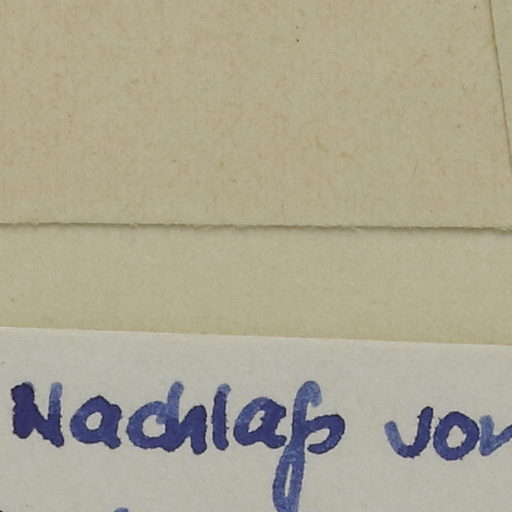 Nachlaß von